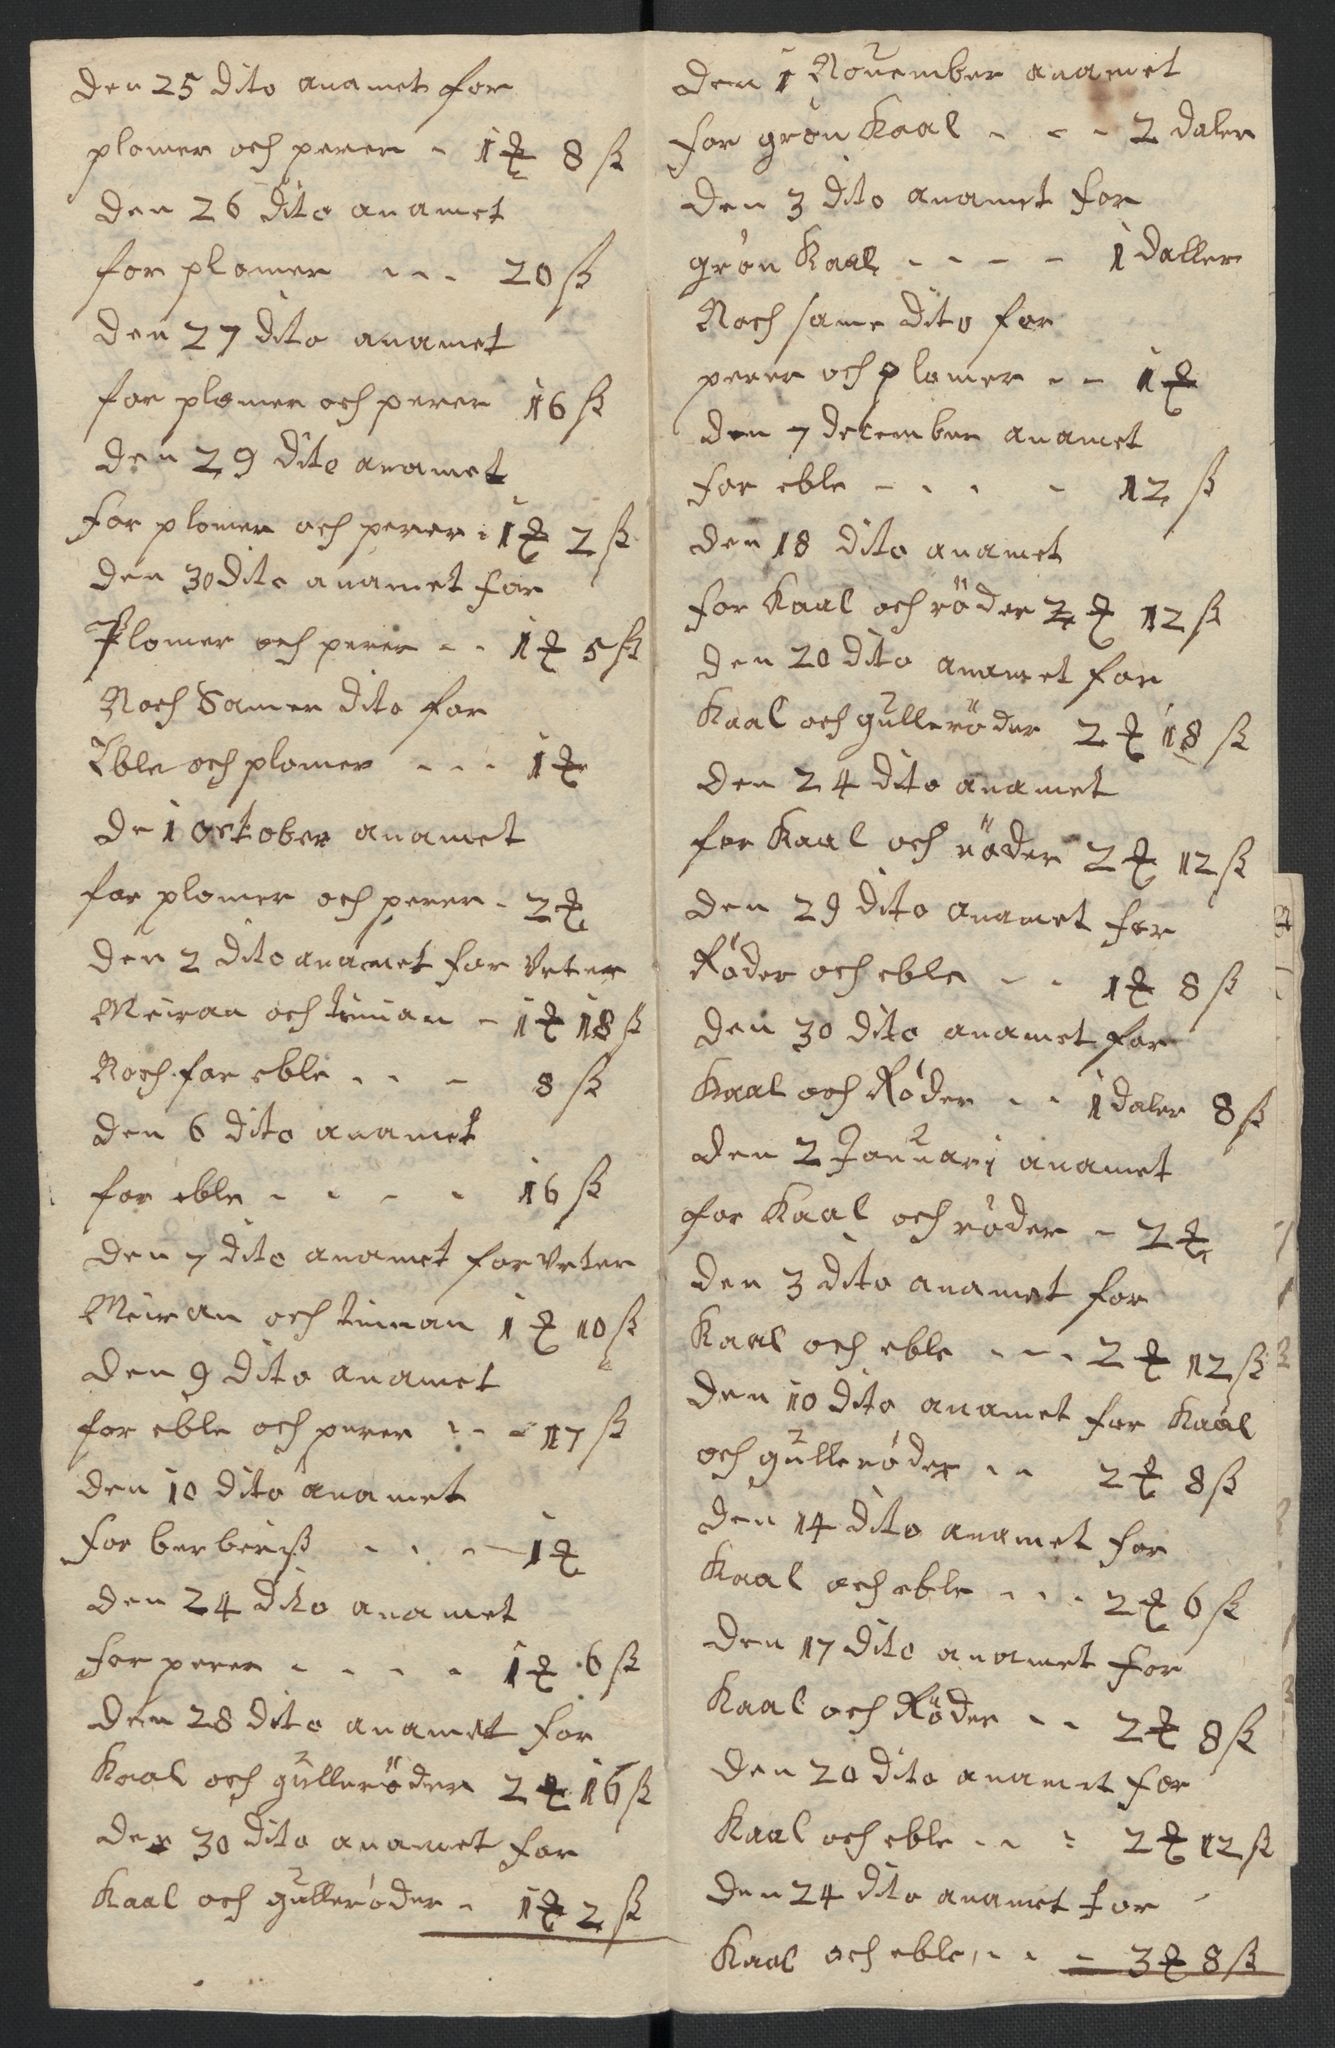 den 25 dito anamet for
plomer och perer - 1 ₰ 8 ß
den 26 dito anamet
for plomer - - - 20 ß
den 27 dito anamet
for plomer och perer 16 ß
den 29 dito anamet
for plomer och perer - 1 ₰ 2 ß
den 30 dito anamet for
Plomer och perer - - 1 ₰ 5 ß
Noch Samer dito for
Eble och plomer - - - 1 ₰
de 1 october anamet
for plomer och perer - 2 ₰
den 2 dito anamet for Urter
Meiran och timian - 1 ₰ 18 ß
Noch for eble - - - 8 ß
den 6 dito anamet
for eble - - - - 16 ß
den 7 dito anamet for Urter
Meiran och timian 1 ₰ 10 ß
den 9 dito anamet
for eble och perer - - - 17 ß
den 10 dito anamet
for berberiß - - - - 1 ₰
den 24 dito anamet
for perer - - - - 1 ₰ 6 ß
den 28 dito anamet for
Kaal och gulleröder 2 ₰ 16 ß
den 30 dito anamet for
Kaal och gulleröder - 1 ₰ 2 ß
den 1 November anamet
for grön Kaal - - - 2 daler
den 3 dito anamet for
grön Kaal - - - - 1 daller
Noch same dito for
perer och plomer - - 1 ₰
den 7 december anamet
for eble - - - - 12 ß
den 18 dito anamet
for Kaal och röder 2 ₰ 12 ß
den 20 dito anamet for
Kaal och gulleröder 2 ₰ 18 ß
den 24 dito anamet
for Kaal och röder 2 ₰ 12 ß
den 29 dito anamet for
Röder och eble - - 1 ₰ 8 ß
den 30 dito anamet for
Kaal och Röder - - 1 daler 8 ß
den 2 Januari anamet
for Kaal och röder - 2 ₰
den 3 dito anamet for
Kaal och eble - - - 2 ₰ 12 ß
den 10 dito anamet for Kaal
och gulleröder - - 2 ₰ 8 ß
den 14 dito anamet for
Kaal och eble - - - 2 ₰ 6 ß
den 17 dito anamet for
Kaal och Röder - - 2 ₰ 8 ß
den 20 dito anamet for
Kaal och eble - - - 2 ₰ 12 ß
den 24 dito anamet for
Kaal och eble - - - 3 ₰ 8 ß